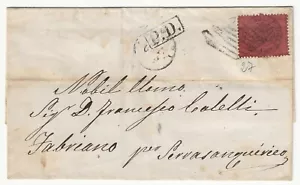 P.D.
27
Nobil Uomo
Sig D. Francesco Calelli
Fabriano per Serrasanquirico